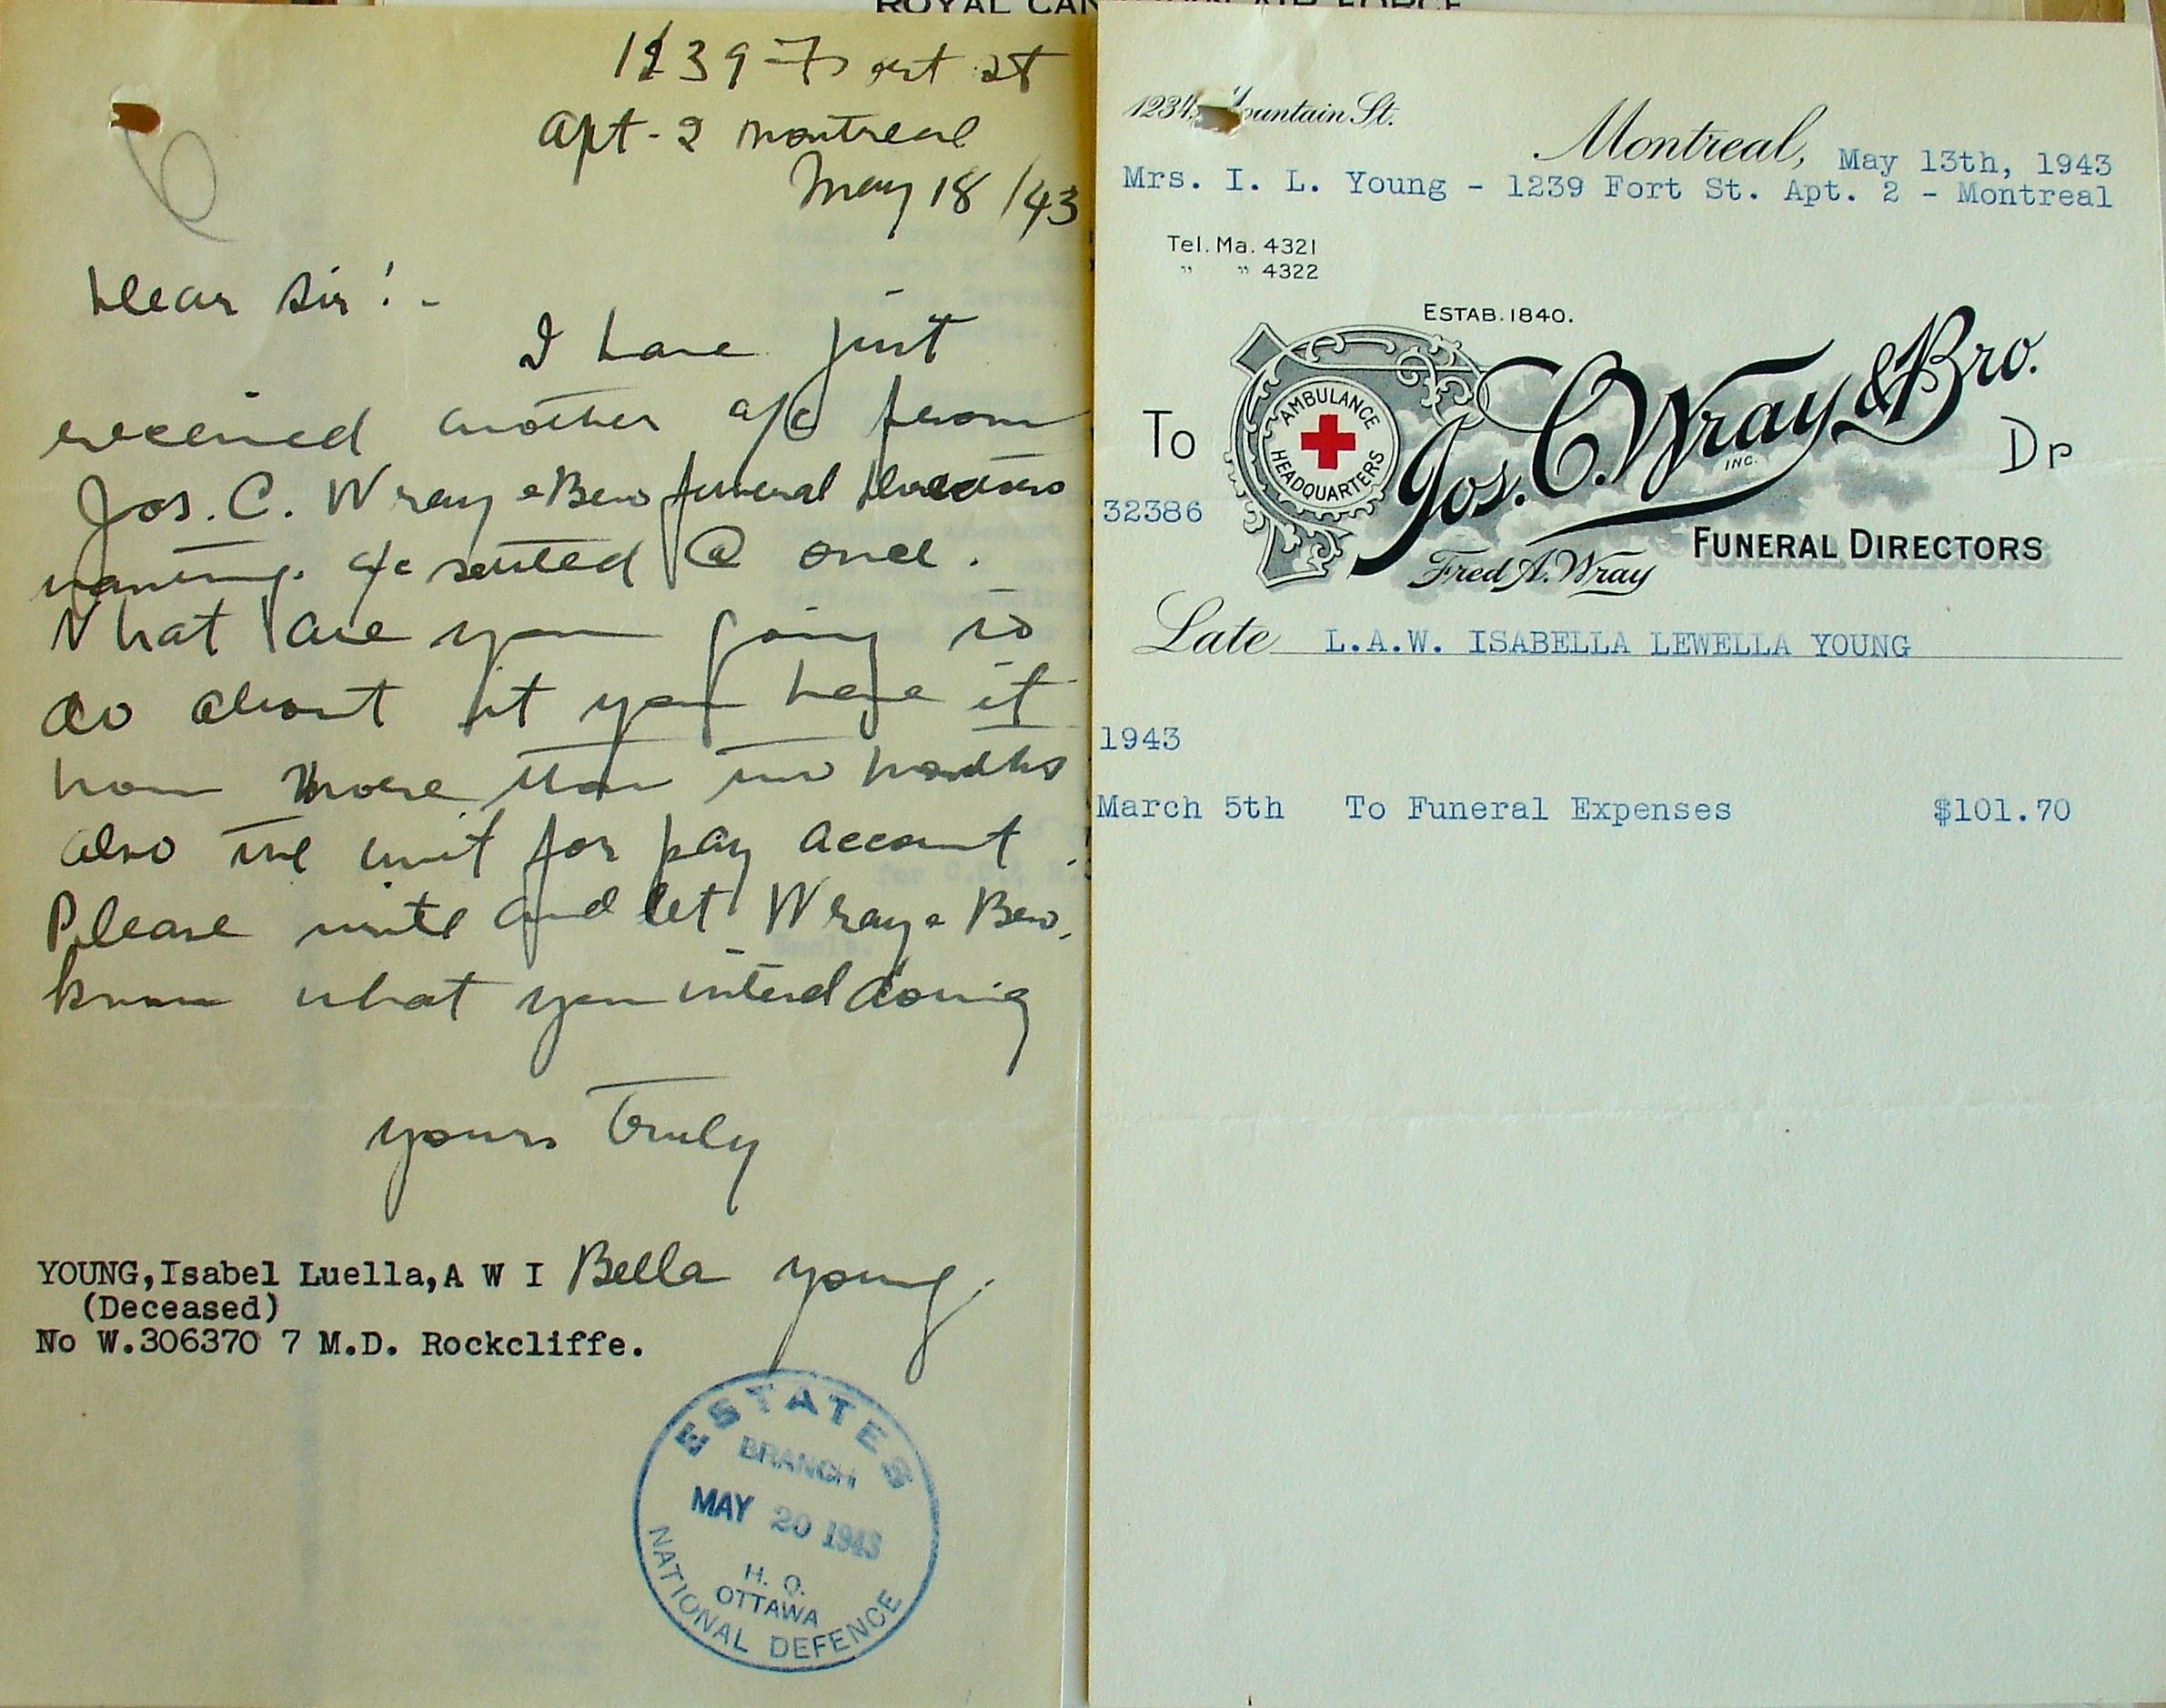 ROYAL CAN AIR FORCE
1239 Fort St
Apt-2 Montreal
May 18/43
Dear Sir! -
I have just
received another a/c from
Jos. C. Wray & Bro funeral Directors
wanting a/c settled @ once.
What are you going to
do about it you have it
now more than two months
also the unit for pay account.
Please write and let Wray & Bro.
know what you intend doing
yours Truly
Bella Young.
YOUNG,Isabel Luella,A W I
(Deceased)
No W.306370 7 M.D. Rockcliffe.
ESTATES
BRANCH
MAY 20 1943
H. Q.
OTTAWA
NATIONAL DEFENCE
1234, ountain St.
Montreal, May 13th, 1943
Mrs. I. L. Young - 1239 Fort St. Apt. 2 - Montreal
Tel. Ma. 4321
" " 4322
ESTAB. 1840.
To Jos. C. Wray & Bro. Dr
INC.
AMBULANCE
HEADQUARTERS
32386
Fred A. Wray
FUNERAL DIRECTORS
Late L.A.W. ISABELLA LEWELLA YOUNG
1943
March 5th To Funeral Expenses $101.70